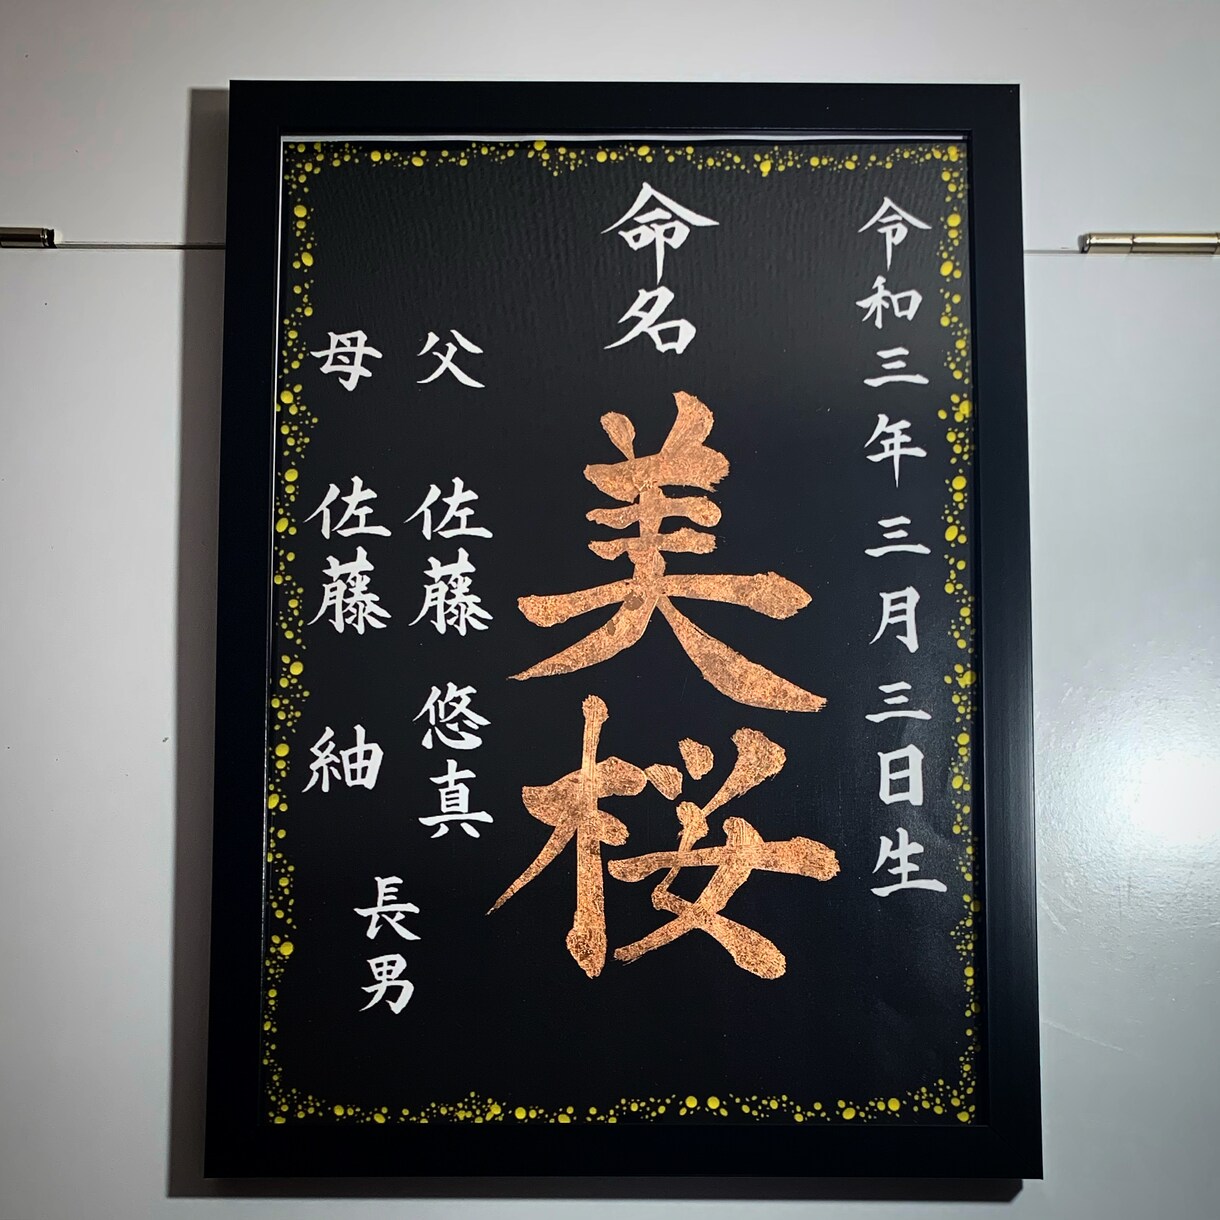 令和三年三月三日生
命名
美桜
父 佐藤 悠真
母 佐藤 紬
長男